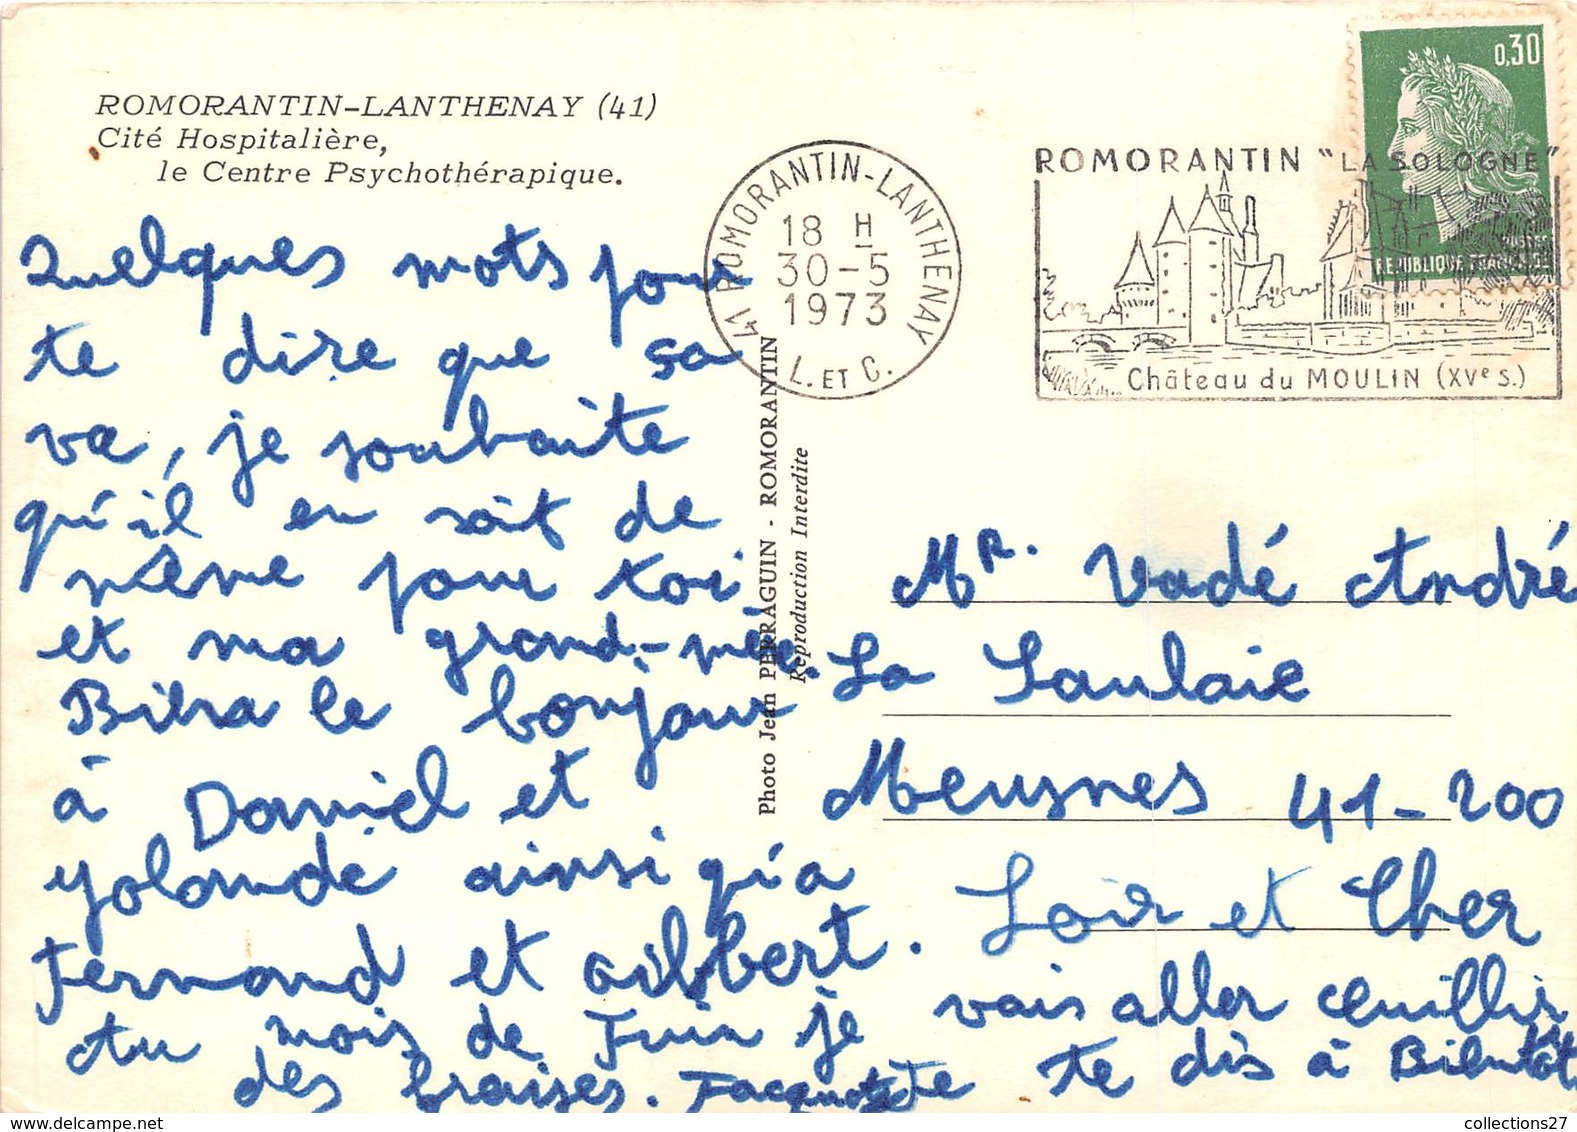 ROMORANTIN-LANTHENAY (41)
Cité Hospitalière,
le Centre Psychothérapique.
41 ROMORANTIN-LANTHENAY
18 H
30-5
1973
L. ET C.
ROMORANTIN "LA SOLOGNE"
Château du MOULIN (XVe S.)
0,30
REPUBLIQUE FRANÇAISE
Quelques mots pour
te dire que sa
va, je souhaite
qu'il en soit de
même pour toi
et ma grand-mère.
le bonjour
à Daniel et
Yolande ainsi qu'a
Fernand et
Au mois de Juin je vais aller ceuillir
des fraises. te dis à
Photo Jean PERRAGUIN - ROMORANTIN
Reproduction Interdite
Mr. Vadé André
La Saulaie
Meusnes 41-200
Loir et Cher
collections27